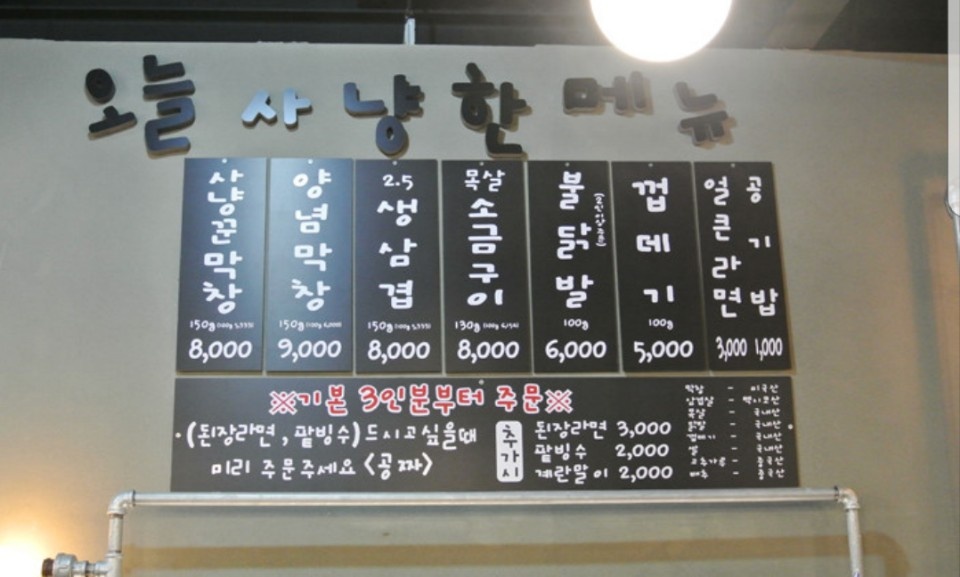 오늘 사냥한 메뉴
사냥꾼막창
150g (100g 5,333)
8,000
양념막창
150g (100g 6,000)
9,000
2.5
생삼겹
150g (100g 5,333)
8,000
목살
소금구이
130g (100g 6,154)
8,000
불닭발
100g
6,000
껍데기
100g
5,000
얼큰라면
3,000
공기밥
1,000
※기본 3인분부터 주문※
(된장라면, 팥빙수) 드시고싶을때
미리 주문주세요 <공짜>
추가시
된장라면 3,000
팥빙수 2,000
계란말이 2,000
막창 - 미국산
삼겹살 - 멕시코산
목살 - 국내산
닭발 - 국내산
껍데기 - 국내산
쌀 - 국내산
고추가루 - 중국산
배추 - 중국산